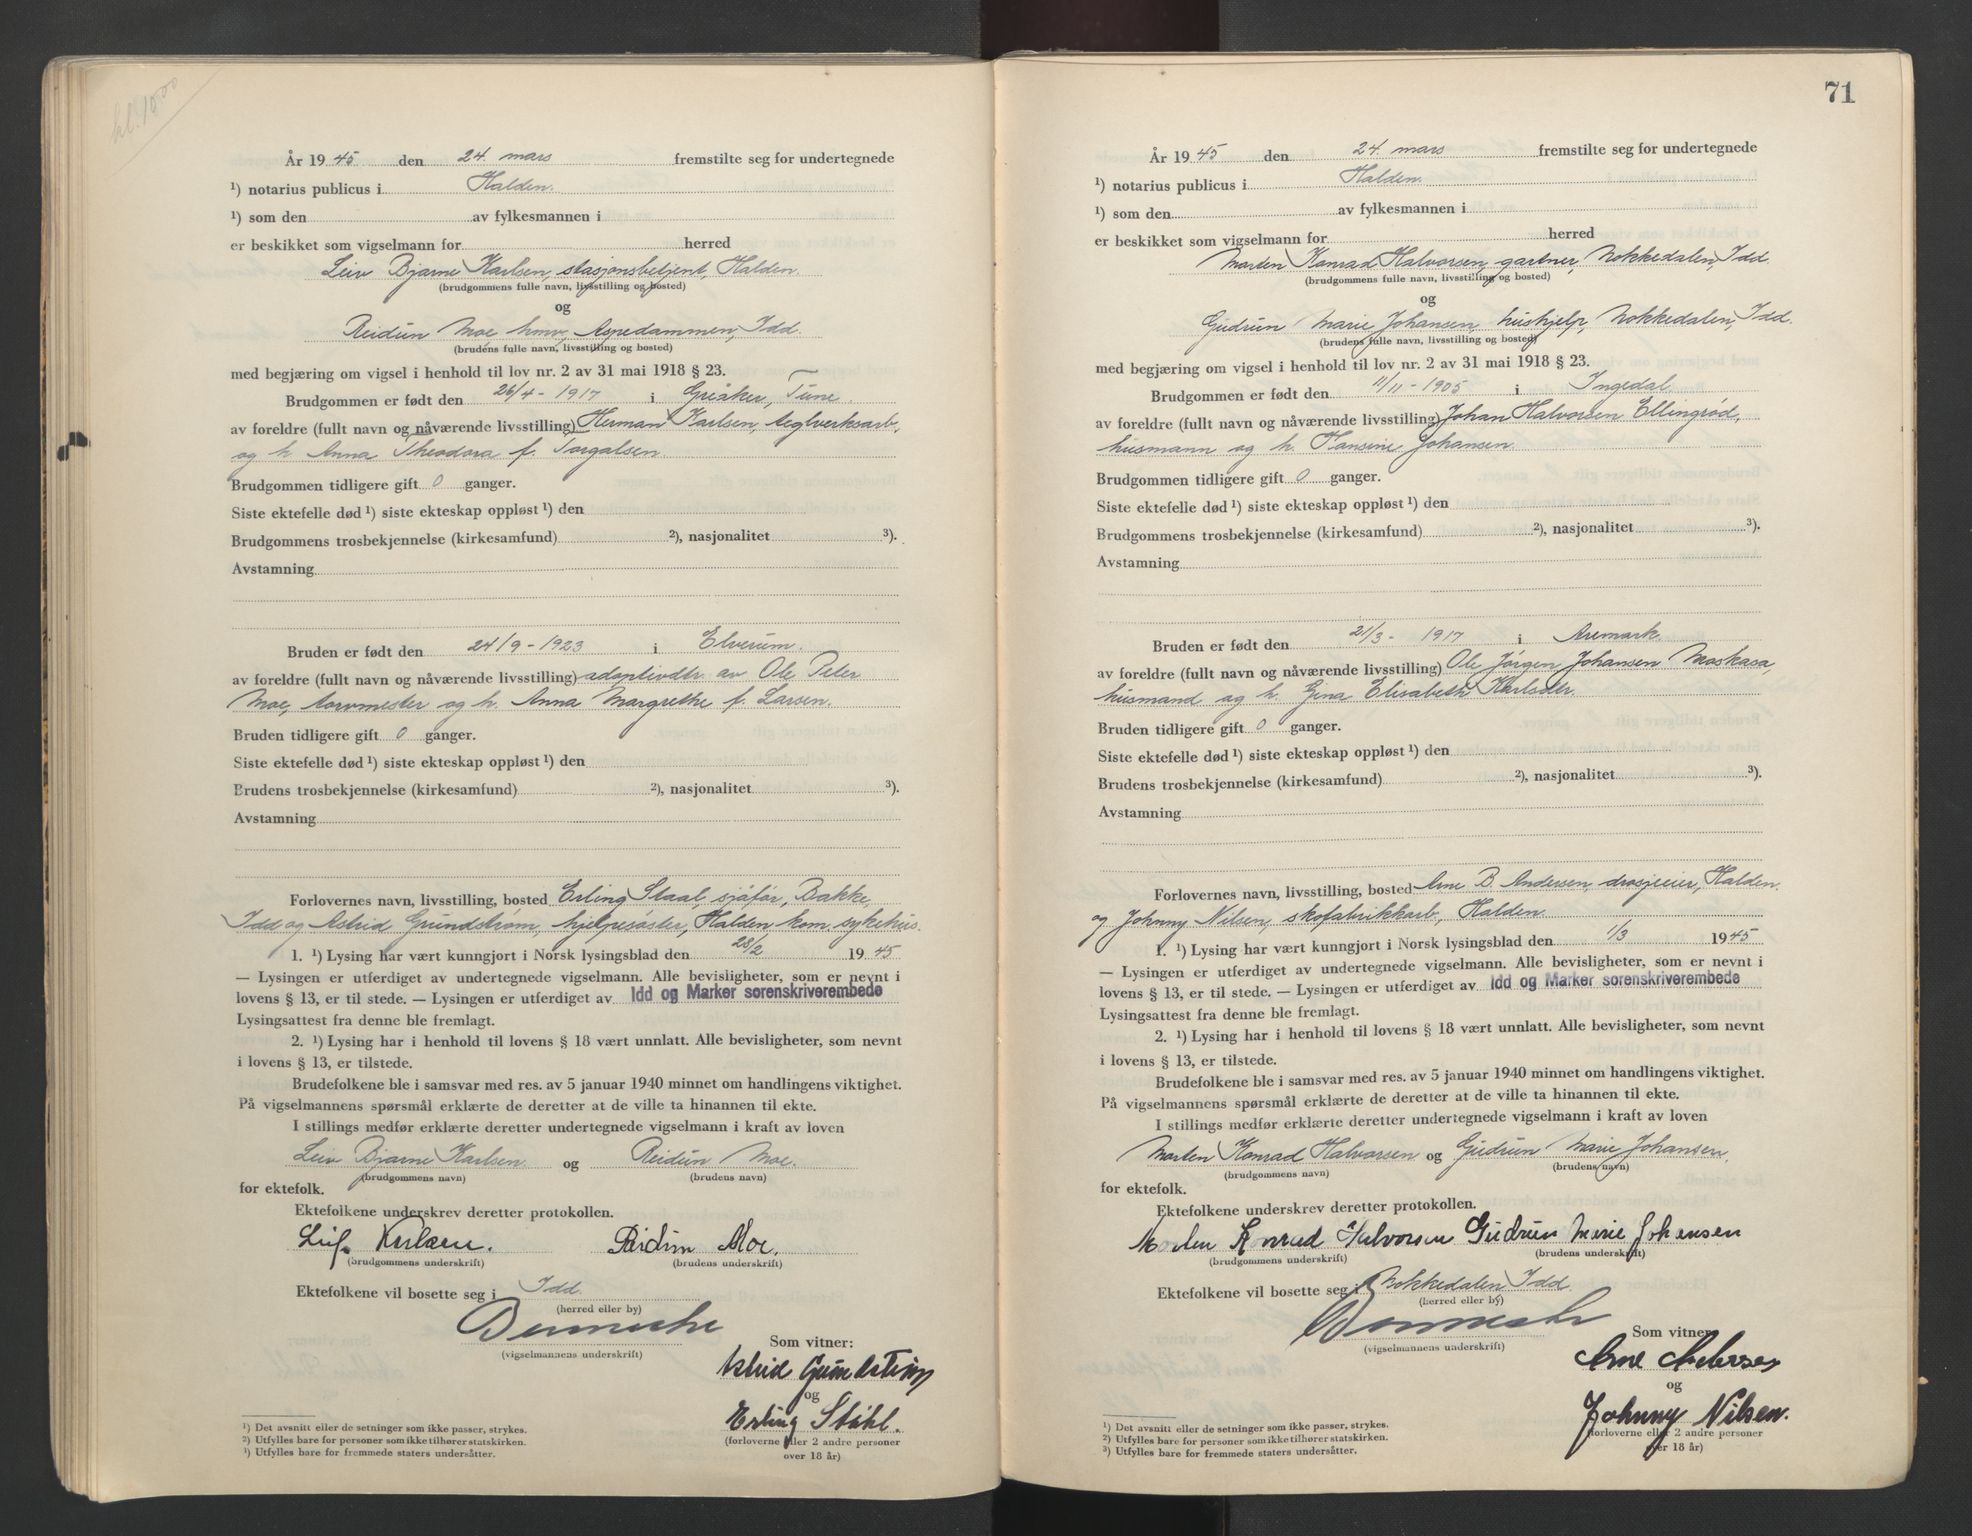 kl. 15 00
År 1945 den 24. mars fremstilte seg for undertegnede
¹) notarius publicus i Halden.
¹) som den av fylkesmannen i
er beskikket som vigselmann for herred
Leiv Bjarne Karlsen, stasjonsbetjent, Halden.
(brudgommens fulle navn, livsstilling og bosted)
og
Reidun Moe hmv, Aspedammen, Idd.
(brudens fulle navn, livsstilling og bosted)
med begjæring om vigsel i henhold til lov nr. 2 av 31 mai 1918 § 23.
Brudgommen er født den 26/4 - 1917 i Greåker, Tune.
av foreldre (fullt navn og nåværende livsstilling) Herman Karlsen, teglverksarb,
og h. Anna Theodora f. Torgalsen.
Brudgommen tidligere gift 0 ganger.
Siste ektefelle død ¹) siste ekteskap oppløst ¹) den
Brudgommens trosbekjennelse (kirkesamfund) ²), nasjonalitet ³).
Avstamning
Bruden er født den 24/9 - 1923 i Elverum.
av foreldre (fullt navn og nåværende livsstilling) adoptivdtr. av Ole Peter
Moe, torvmester og h. Anna Margrethe f. Larsen.
Bruden tidligere gift 0 ganger.
Siste ektefelle død ¹) siste ekteskap oppløst ¹) den
Brudens trosbekjennelse (kirkesamfund) ²), nasjonalitet ³).
Avstamning
Forlovernes navn, livsstilling, bosted Erling Staal, sjåfør, Bakke,
Idd og Astrid Grundstrøm, hjelpesøster, Halden kom sykehus.
1. ¹) Lysing har vært kunngjort i Norsk lysingsblad den 28/2 1945
— Lysingen er utferdiget av undertegnede vigselmann. Alle bevisligheter, som er nevnt i
lovens § 13, er til stede. — Lysingen er utferdiget av Idd og Marker sorenskriverembede
Lysingsattest fra denne ble fremlagt.
2. ¹) Lysing har i henhold til lovens § 18 vært unnlatt. Alle bevisligheter, som nevnt
i lovens § 13, er tilstede.
Brudefolkene ble i samsvar med res. av 5 januar 1940 minnet om handlingens viktighet.
På vigselmannens spørsmål erklærte de deretter at de ville ta hinannen til ekte.
I stillings medfør erklærte deretter undertegnede vigselmann i kraft av loven
Leiv Bjarne Karlsen og Reidun Moe.
(brudgommens navn) (brudens navn)
for ektefolk.
Ektefolkene underskrev deretter protokollen.
Leif Karlsen. Reidun Moe.
(brudgommens underskrift) (brudens underskrift)
Ektefolkene vil bosette seg i Idd.
(herred eller by)
(vigselmannens underskrift)
Som vitner:
Astrid Grundstrøm
og
Erling Ståhl.
(forloverne eller 2 andre personer
over 18 år)
¹) Det avsnitt eller de setninger som ikke passer, strykes.
²) Utfylles bare for personer som ikke tilhører statskirken.
³) Utfylles bare for fremmede staters undersåtter.
71
År 1945 den 24. mars fremstilte seg for undertegnede
¹) notarius publicus i Halden.
¹) som den av fylkesmannen i
er beskikket som vigselmann for herred
Morten Konrad Halvorsen, gartner, Nokkedalen, Idd
(brudgommens fulle navn, livsstilling og bosted)
og
Gudrun Marie Johansen, hushjelp, Nokkedalen, Idd.
(brudens fulle navn, livsstilling og bosted)
med begjæring om vigsel i henhold til lov nr. 2 av 31 mai 1918 § 23.
Brudgommen er født den 11/11 - 1905 i Ingedal
av foreldre (fullt navn og nåværende livsstilling) Johan Halvorsen Ellingrød,
husmann og h. Hansine Johansen.
Brudgommen tidligere gift 0 ganger.
Siste ektefelle død ¹) siste ekteskap oppløst ¹) den
Brudgommens trosbekjennelse (kirkesamfund) ²), nasjonalitet ³).
Avstamning
Bruden er født den 21/3 - 1917 i Aremark.
av foreldre (fullt navn og nåværende livsstilling) Ole Jørgen Johansen Moskasa,
husmand og h. Gina Elisabeth Karlsdtr.
Bruden tidligere gift 0 ganger.
Siste ektefelle død ¹) siste ekteskap oppløst ¹) den
Brudens trosbekjennelse (kirkesamfund) ²), nasjonalitet ³).
Avstamning
Forlovernes navn, livsstilling, bosted Arne B. Andersen, drosjeeier, Halden.
og Johnny Nilsen, skofabrikkarb, Halden.
1. ¹) Lysing har vært kunngjort i Norsk lysingsblad den 1/3 1945
— Lysingen er utferdiget av undertegnede vigselmann. Alle bevisligheter, som er nevnt i
lovens § 13, er til stede. — Lysingen er utferdiget av Idd og Marker sorenskriverembede
Lysingsattest fra denne ble fremlagt.
2. ¹) Lysing har i henhold til lovens § 18 vært unnlatt. Alle bevisligheter, som nevnt
i lovens § 13, er tilstede.
Brudefolkene ble i samsvar med res. av 5 januar 1940 minnet om handlingens viktighet.
På vigselmannens spørsmål erklærte de deretter at de ville ta hinannen til ekte.
I stillings medfør erklærte deretter undertegnede vigselmann i kraft av loven
Morten Konrad Halvorsen og Gudrun Marie Johansen.
(brudgommens navn) (brudens navn)
for ektefolk.
Ektefolkene underskrev deretter protokollen.
Morten Konrad Halvorsen Gudrun Marie Johansen
(brudgommens underskrift) (brudens underskrift)
Ektefolkene vil bosette seg i Nokkedalen, Idd
(herred eller by)
(vigselmannens underskrift)
Som vitner:
Arne Andersen
og
Johnny Nilsen.
(forloverne eller 2 andre personer
over 18 år)
¹) Det avsnitt eller de setninger som ikke passer, strykes.
²) Utfylles bare for personer som ikke tilhører statskirken.
³) Utfylles bare for fremmede staters undersåtter.